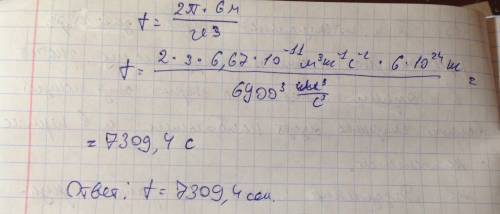 t = 2π · GM / v3
t = 2 · 3 · 6,67 · 10⁻¹¹ м³ кг⁻¹ с⁻² · 6 · 10²⁴ кг / 6900³ м³/с³ =
= 7309,4 с
Ответ: t = 7309,4 сек.